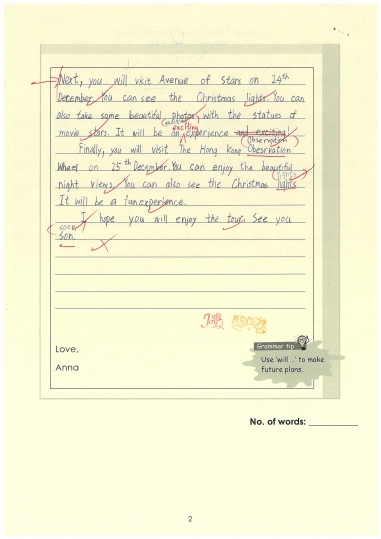 Next, you will visit Avenue of Stars on 24th
December. You can see the Christmas lights. You can
also take some beautiful photos with the statues of
movie stars. It will be an exciting experience and exciting!
Observation
Finally, you will visit The Hong Kong Obesrvation
Wheel on 25th December. You can enjoy the beautiful
lights
night views. You can also see the Christmas lights
It will be a fun experience.
I hope you will enjoy the tour. See you
soon
son.
Love,
Anna
Grammar tip
Use 'will ...' to make
future plans.
No. of words:
2